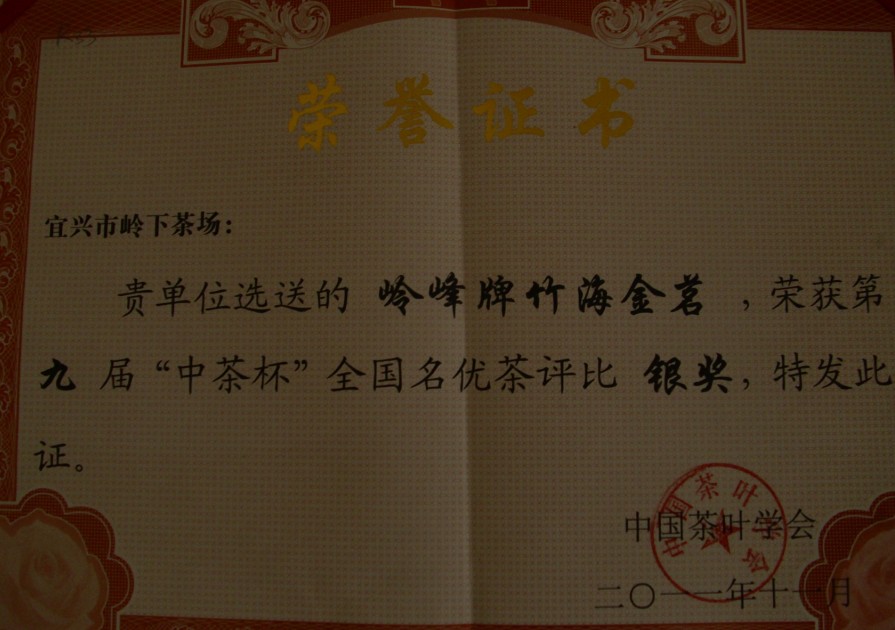 荣誉证书
宜兴市岭下茶场：
贵单位选送的 岭峰牌竹海金茗 ，荣获第
九 届“中茶杯”全国名优茶评比 银奖，特发此
证。
中国茶叶学会
二〇一一年十一月
中国茶叶学会